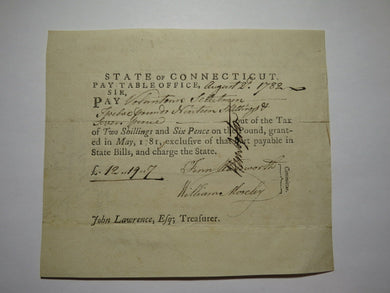 STATE OF CONNECTICUT.
PAY TABLE OFFICE, August 2d. 1782
SIR,
PAY Voluntown Selectmen
Twelve pounds Nineteen Shillings &
Seven pence out of the Tax
of Two Shillings and Six Pence on the Pound, grant-
ed in May, 1781, exclusive of that part payable in
State Bills, and charge the State.
£ 12 " 19 " 7
Fenn Wadsworth
William Moseley
Committee.
John Lawrence, Esq; Treasurer.